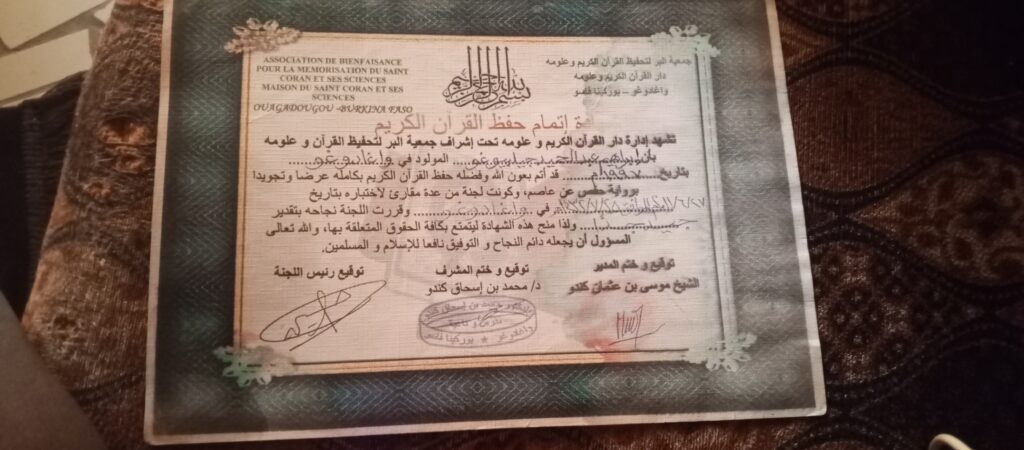 ASSOCIATION DE BIENFAISANCE
POUR LA MEMORISATION DU SAINT
CORAN ET SES SCIENCES
MAISON DU SAINT CORAN ET SES
SCIENCES
OUAGADOUGOU -BURKINA FASO
جمعية البر لتحفيظ القرآن الكريم وعلومه
دار القرآن الكريم وعلومه
واغادوغو – بوركينا فاسو
إتمام حفظ القرآن الكريم
تشهد إدارة دار القرآن الكريم و علومه تحت إشراف جمعية البر لتحفيظ القرآن و علومه
بأن المولود في واغادوغو
بتاريخ قد أتم بعون الله وفضله حفظ القرآن الكريم بكامله عرضا وتجويدا
برواية حفص عن عاصم، وكونت لجنة من عدة مقارئ لاختباره بتاريخ
في واغادوغو وقررت اللجنة نجاحه بتقدير
ولذا منح هذه الشهادة ليتمتع بكافة الحقوق المتعلقة بها، والله تعالى
المسؤول أن يجعله دائم النجاح و التوفيق نافعا للإسلام و المسلمين.
توقيع و ختم المدير
الشيخ موسى بن عثمان كندو
توقيع و ختم المشرف
د/ محمد بن إسحاق كندو
توقيع رئيس اللجنة
محمد بن إسحاق كندو
واغادوغو ★ بوركينا فاسو